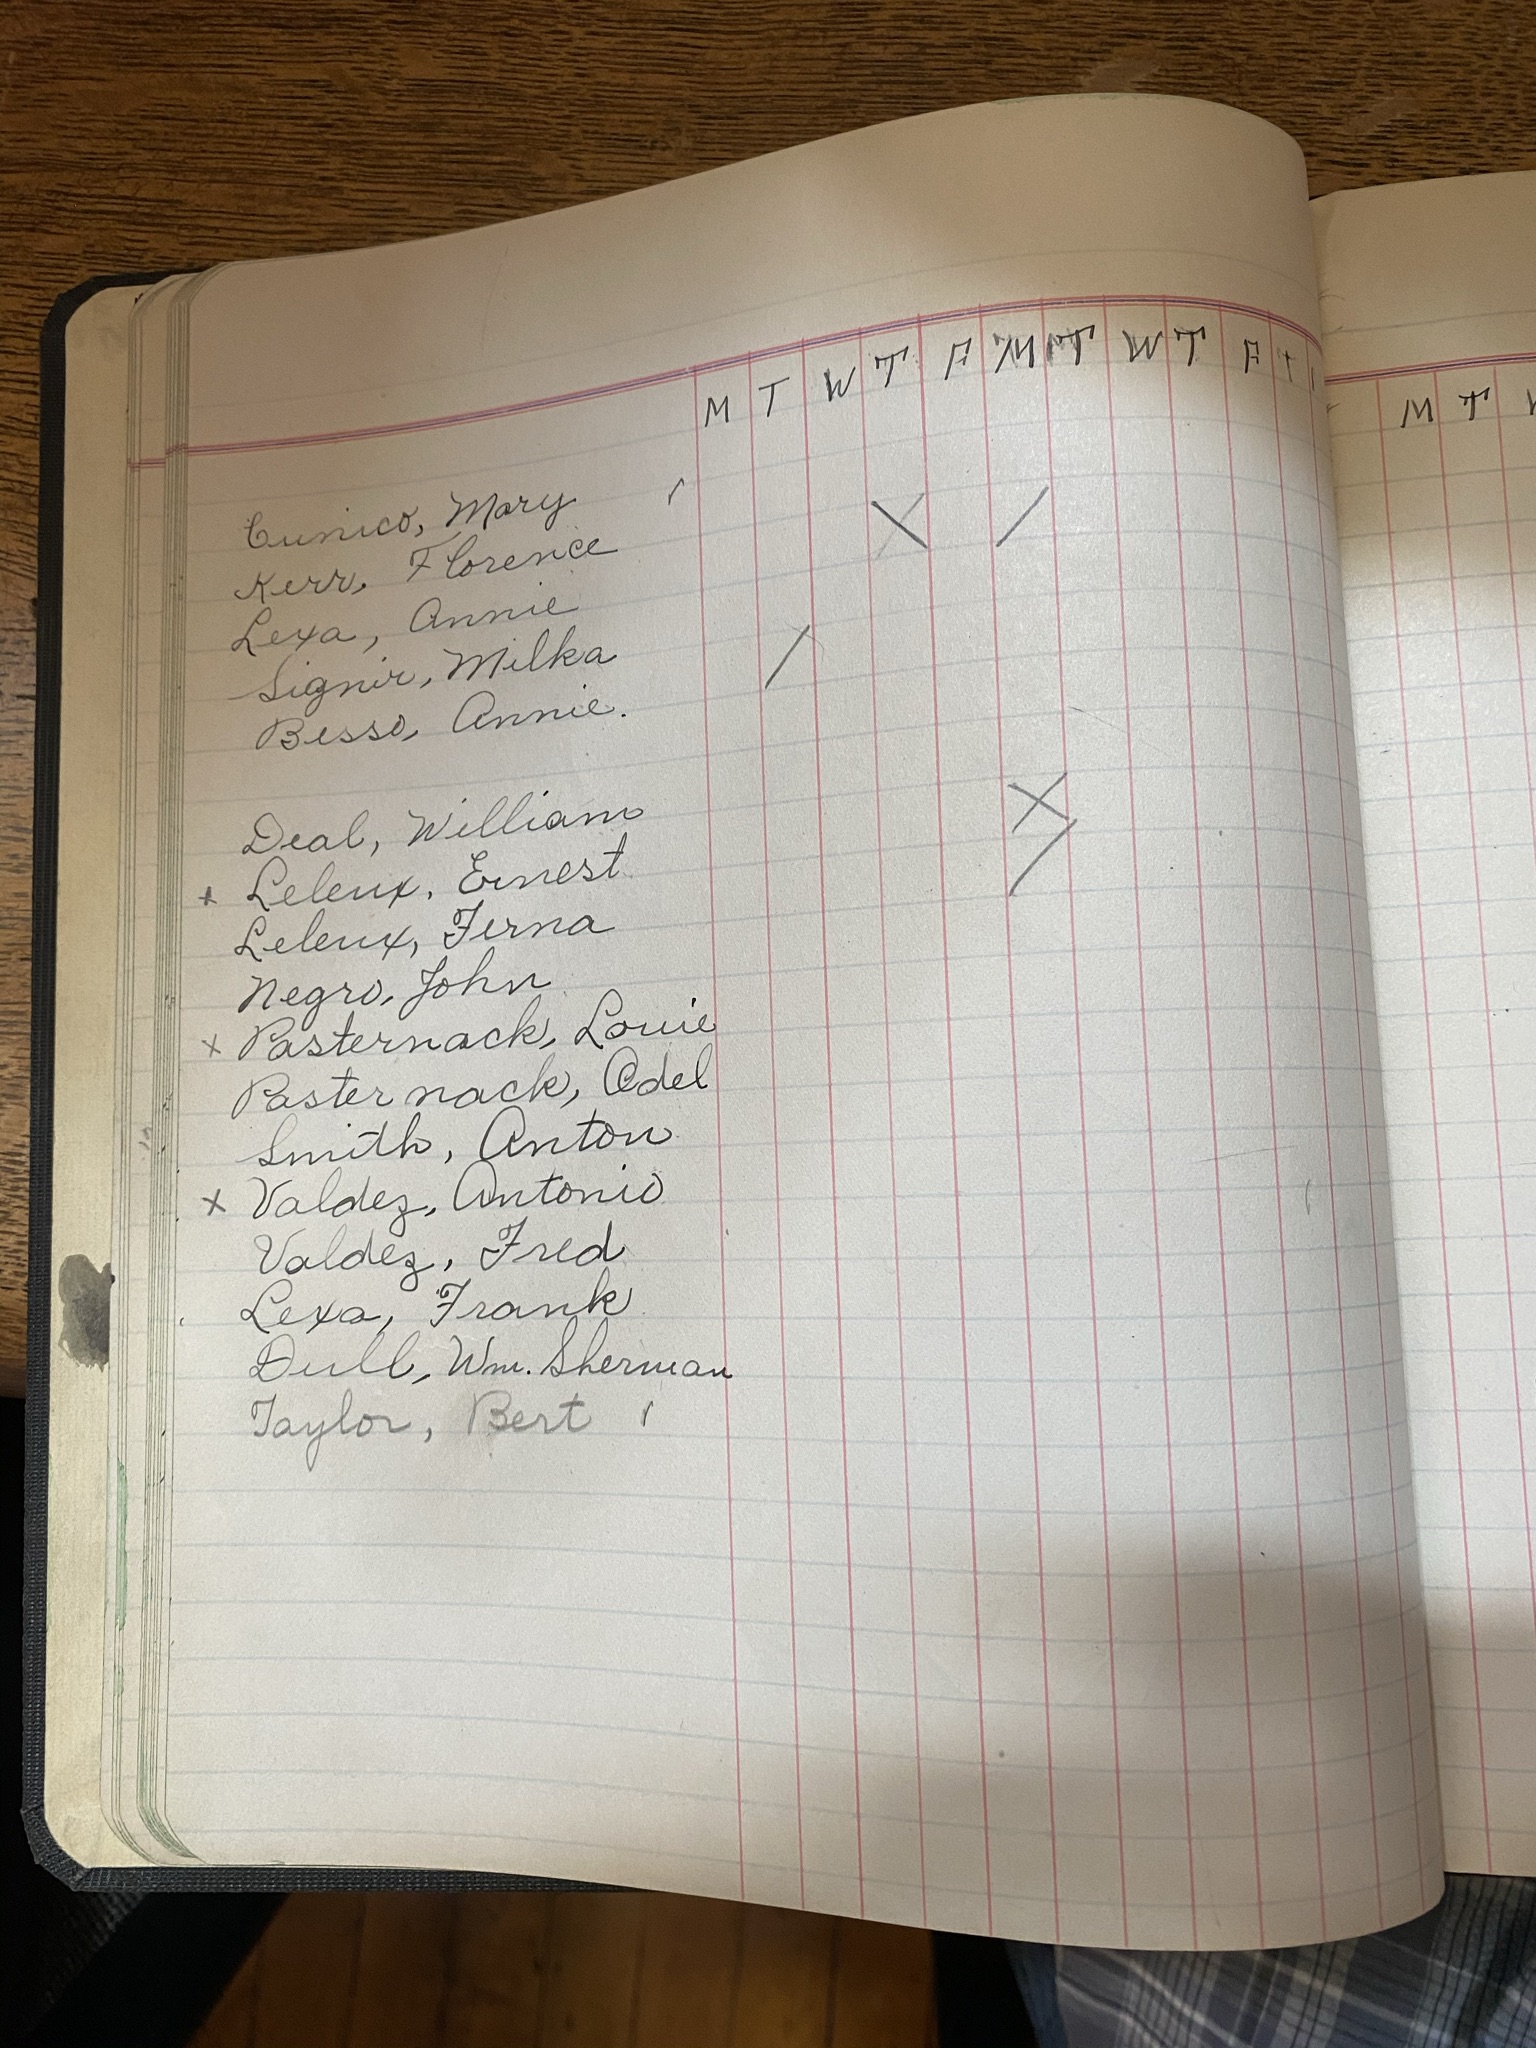 M T W T F M T W T F
M T
Cunico, Mary
Kerr, Florence
Lexa, Annie
Signir, Milka
Besso, Annie.
Deal, William
x Leleux, Ernest
Leleux, Ferna
Negro, John
x Pasternack, Louie
Pasternack, Adel
Smith, Anton
x Valdez, Antonio
Valdez, Fred
Lexa, Frank
Dull, Wm. Sherman
Taylor, Bert